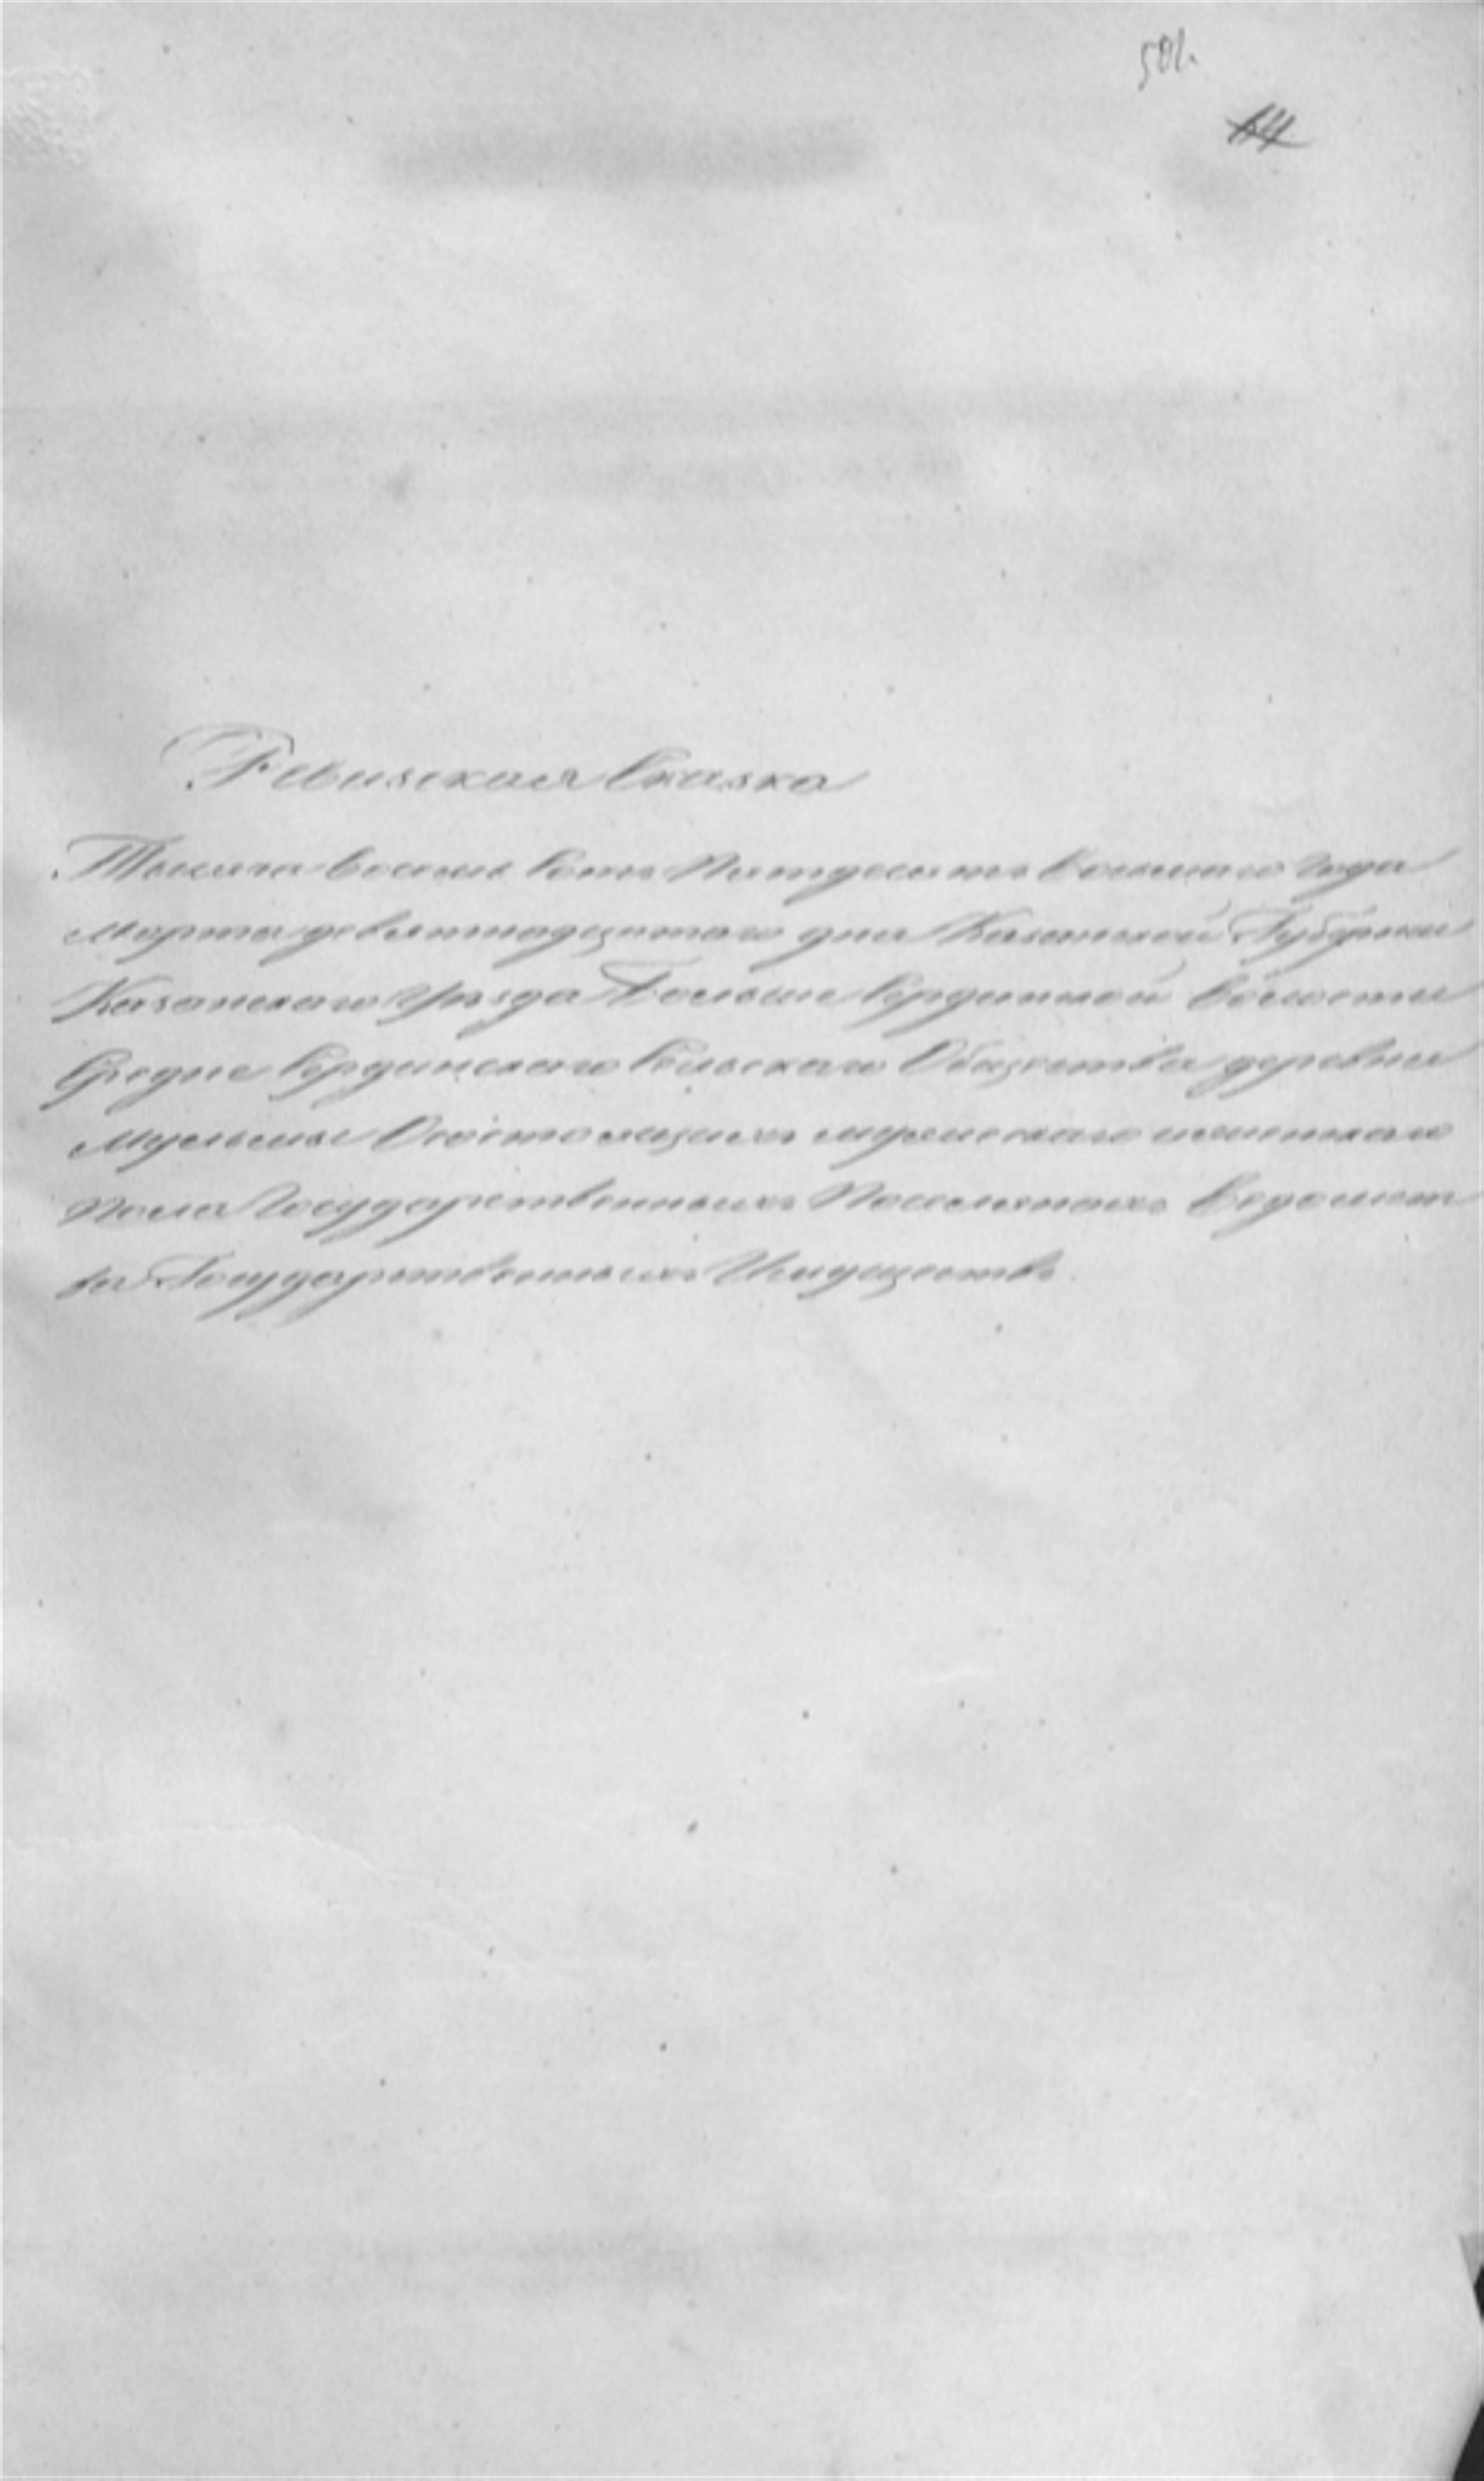 501.
14
Ревизская Сказка
Тысяча восемь сотъ Пятьдесятъ восьмаго года
Марта девятнадцатаго дня Казанской Губерніи
Казанскаго Уѣзда Больше Сердинской Волости
Средне Сердинскаго Сельскаго Общества деревни
О состоящихъ мужескаго и женскаго
пола Государственныхъ Поселянахъ Ведомст
ва Государственныхъ Имуществъ.